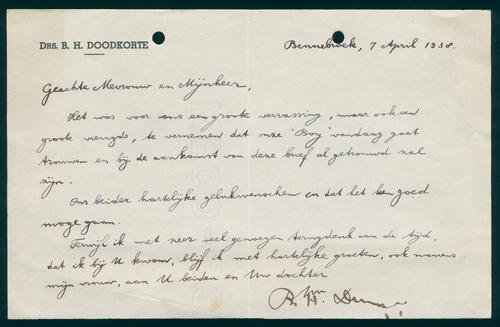 DRS. B. H. DOODKORTE
Bennebroek, 7 April 1938.
Geachte Mevrouw en Mijnheer,
Het was voor ons een groote verrassing, maar ook een
groote vreugde, te vernemen dat onze "Boy" vandaag gaat
trouwen en bij de aankomst van deze brief al getrouwd zal
zijn.
Ons beider hartelijke gelukwenschen en dat het hen goed
moge gaan.
Terwijl ik met zeer veel genoegen terugdenk aan de tijd,
dat ik bij U kwam, blijf ik met hartelijke groeten, ook namens
mijn vrouw, aan U beiden en Uw dochter